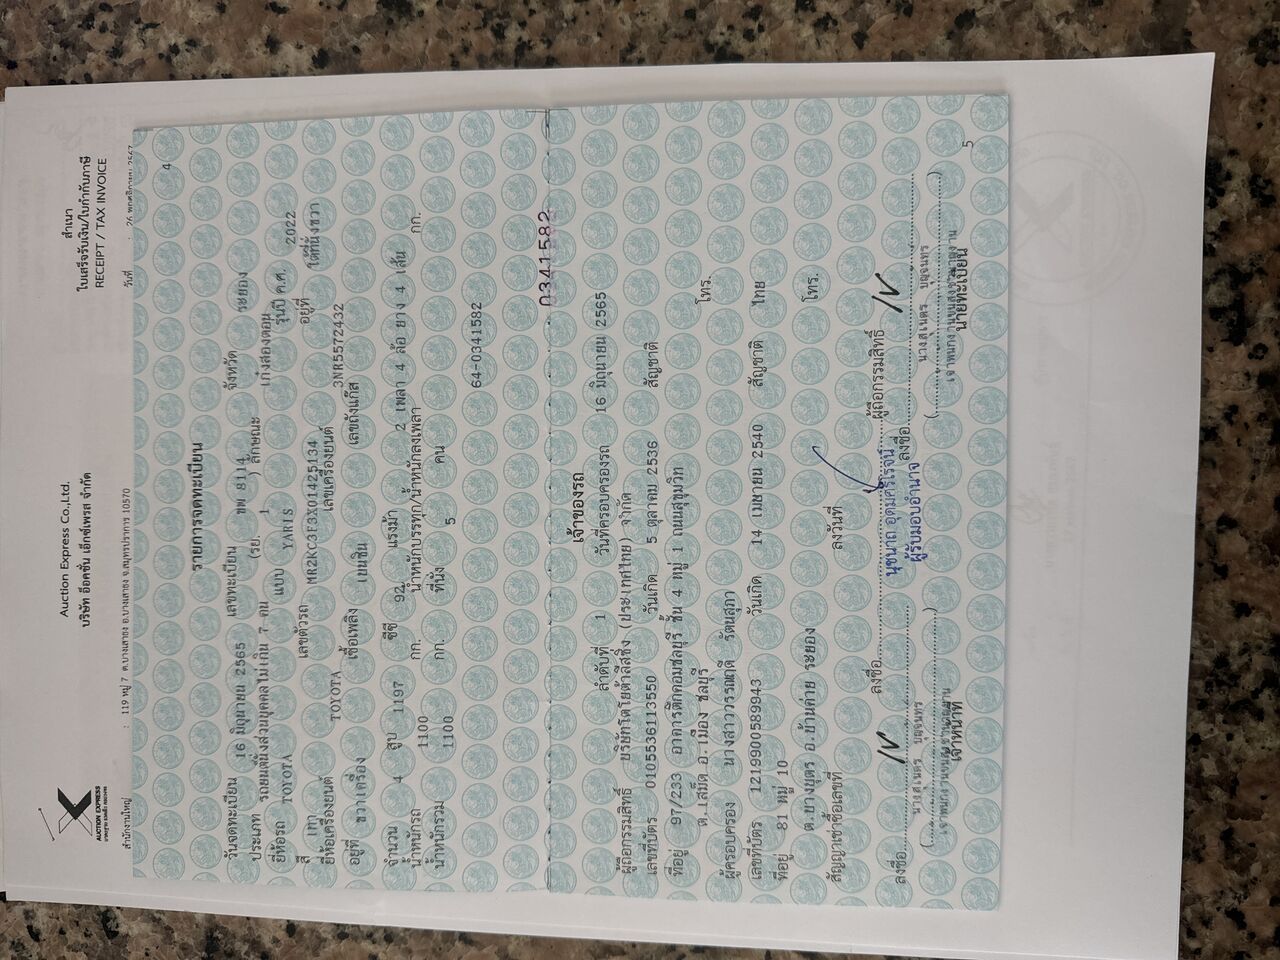 สำเนา
ใบเสร็จรับเงิน/ใบกำกับภาษี
RECEIPT / TAX INVOICE
Auction Express Co.,Ltd.
บริษัท อ๊อคชั่น เอ็กซ์เพรส จำกัด
AUCTION EXPRESS
สำนักงานใหญ่ : 119 หมู่ 7 ต.บางเสาธง อ.บางเสาธง จ.สมุทรปราการ 10570 วันที่ : 26 พฤศจิกายน 2567
4
รายการจดทะเบียน
วันจดทะเบียน 16 มิถุนายน 2565 เลขทะเบียน ขพ 8114 จังหวัด ระยอง
ประเภท รถยนต์นั่งส่วนบุคคลไม่เกิน 7 คน (รย. 1 ) ลักษณะ เก๋งสองตอน
ยี่ห้อรถ TOYOTA แบบ YARIS รุ่นปี ค.ศ. 2022
สี เทา เลขตัวรถ MR2KC3F3X01425134 อยู่ที่ ใต้ที่นั่งขวา
ยี่ห้อเครื่องยนต์ TOYOTA เลขเครื่องยนต์ 3NR5572432
อยู่ที่ ขวาเครื่อง เชื้อเพลิง เบนซิน เลขถังแก๊ส
จำนวน 4 สูบ 1197 ซีซี 92 แรงม้า 2 เพลา 4 ล้อ ยาง 4 เส้น
น้ำหนักรถ 1100 กก. น้ำหนักบรรทุก/น้ำหนักลงเพลา กก.
น้ำหนักรวม 1100 กก. ที่นั่ง 5 คน
64-0341582
0341582
เจ้าของรถ
ลำดับที่ 1 วันที่ครอบครองรถ 16 มิถุนายน 2565
ผู้ถือกรรมสิทธิ์ บริษัทโตโยต้าลีสซิ่ง (ประเทศไทย) จำกัด
เลขที่บัตร 0105536113550 วันเกิด 5 ตุลาคม 2536 สัญชาติ
ที่อยู่ 97/233 อาคารตึกคอมชลบุรี ชั้น 4 หมู่ 1 ถนนสุขุมวิท
ต.เสม็ด อ.เมือง ชลบุรี โทร.
ผู้ครอบครอง นางสาววรรณฤดี รัตนสุภา
เลขที่บัตร 1219900589943 วันเกิด 14 เมษายน 2540 สัญชาติ ไทย
ที่อยู่ 81 หมู่ 10
ต.บางบุตร อ.บ้านค่าย ระยอง โทร.
สัญญาเช่าซื้อเลขที่ ลงวันที่
ลงชื่อ ผู้ถือกรรมสิทธิ์
นุชนาถ อุดมศิริโรจน์
ผู้รับมอบอำนาจ
ลงชื่อ ลงชื่อ
เจ้าหน้าที่ นายทะเบียน
5